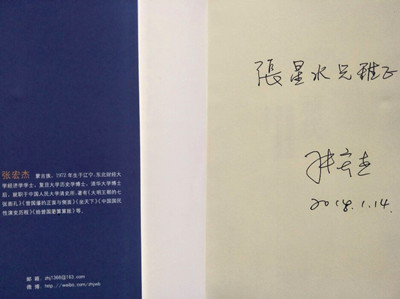 张宏杰 蒙古族，1972年生于辽宁，东北财经大
学经济学学士，复旦大学历史学博士，清华大学博士
后，就职于中国人民大学清史所。著有《大明王朝的七
张面孔》《曾国藩的正面与侧面》《坐天下》《中国国民
性演变历程》《给曾国藩算算账》等。
邮 箱：zhj1368@163.com
微 博：http://weibo.com/zhjwb
張星水兄雅正
张宏杰
2018.1.14.